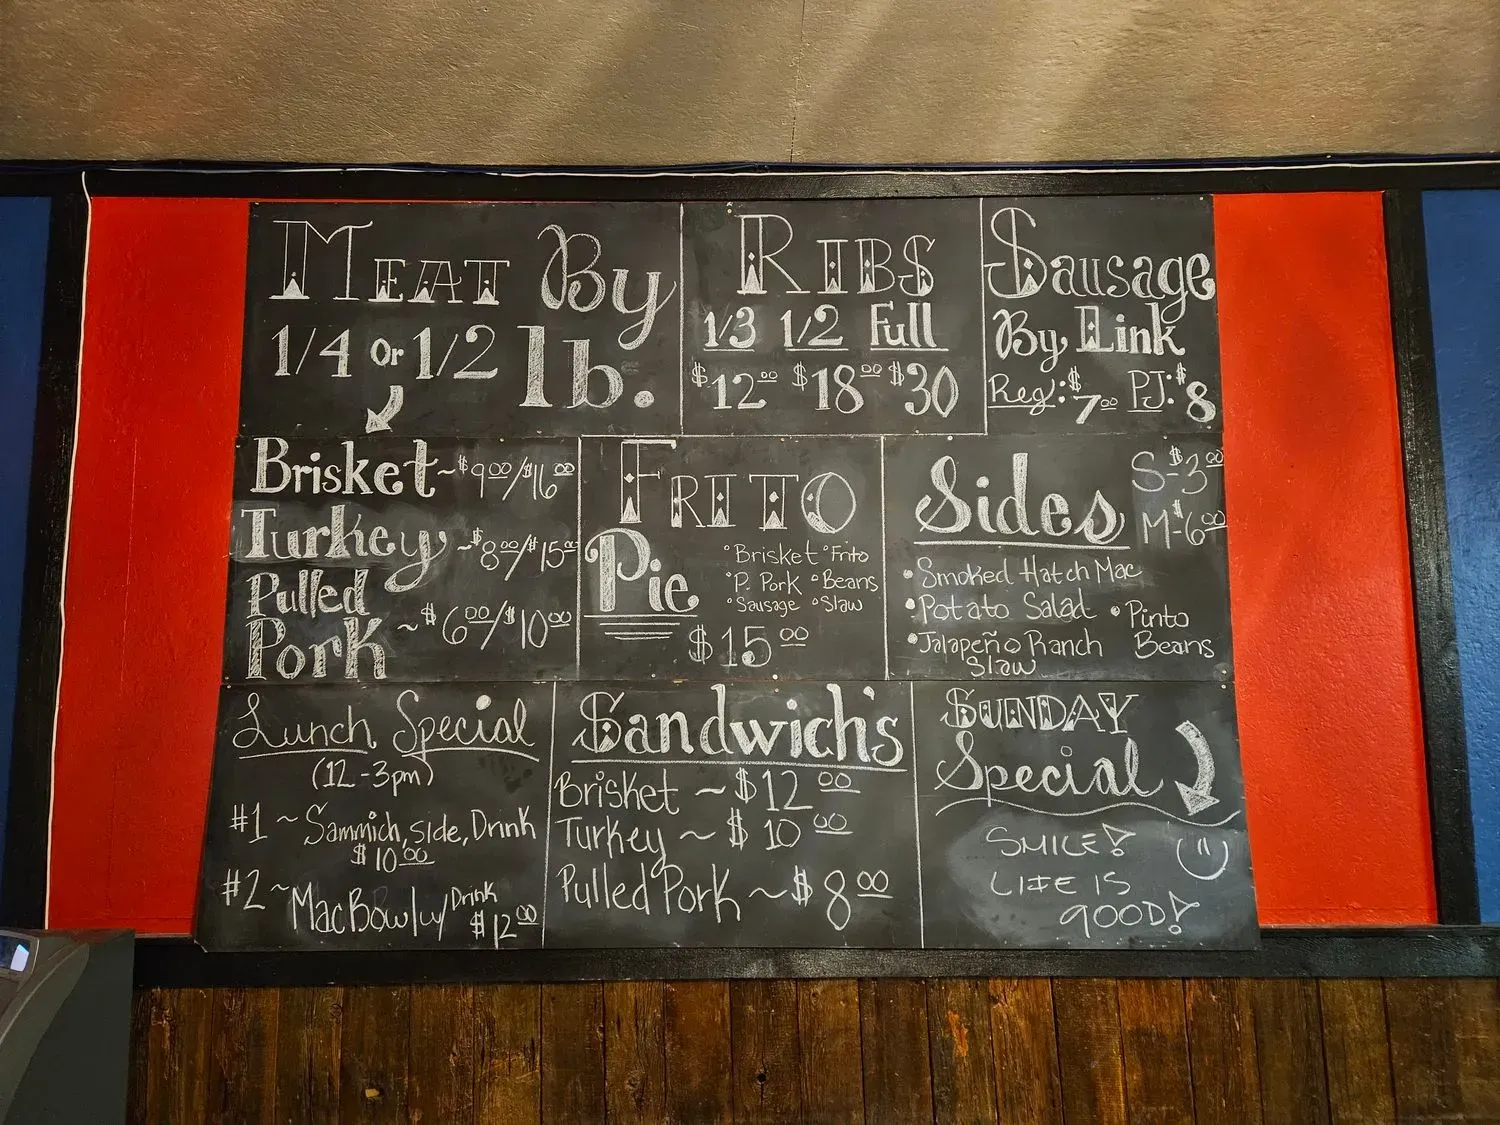 MEAT By
1/4 or 1/2 lb.
Brisket ~ $9.00/$16.00
Turkey ~ $8.00/$15.00
Pulled
Pork ~ $6.00/$10.00
RIBS
1/3 1/2 Full
$12.00 $18.00 $30
Sausage
By Link
Reg: $7.00 PJ: $8
FRITO
Pie
°Brisket °Frito
°P. Pork °Beans
°Sausage °Slaw
$15.00
Sides
S-$3.00
M-$6.00
•Smoked Hatch Mac
•Potato Salad
•Jalapeño Ranch
Slaw
•Pinto
Beans
Lunch Special
(12-3pm)
#1 ~ Sammich, side, Drink
$10.00
#2 ~ Mac Bowl w/ Drink
$12.00
Sandwich's
Brisket ~ $12.00
Turkey ~ $10.00
Pulled Pork ~ $8.00
SUNDAY
Special
SMILE!
LIFE IS
GOOD!